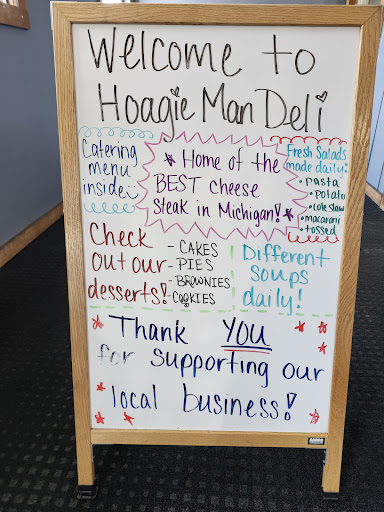 Welcome to
Hoagie Man Deli
Catering
menu
inside
* Home of the
BEST Cheese
Steak in Michigan! *
Fresh Salads
made daily:
• pasta
• potato
• coleslaw
• macaroni
• tossed
Check
out our
desserts!
- CAKES
- PIES
- BROWNIES
- COOKIES
Different
Soups
daily!
Thank YOU
for supporting our
local business!